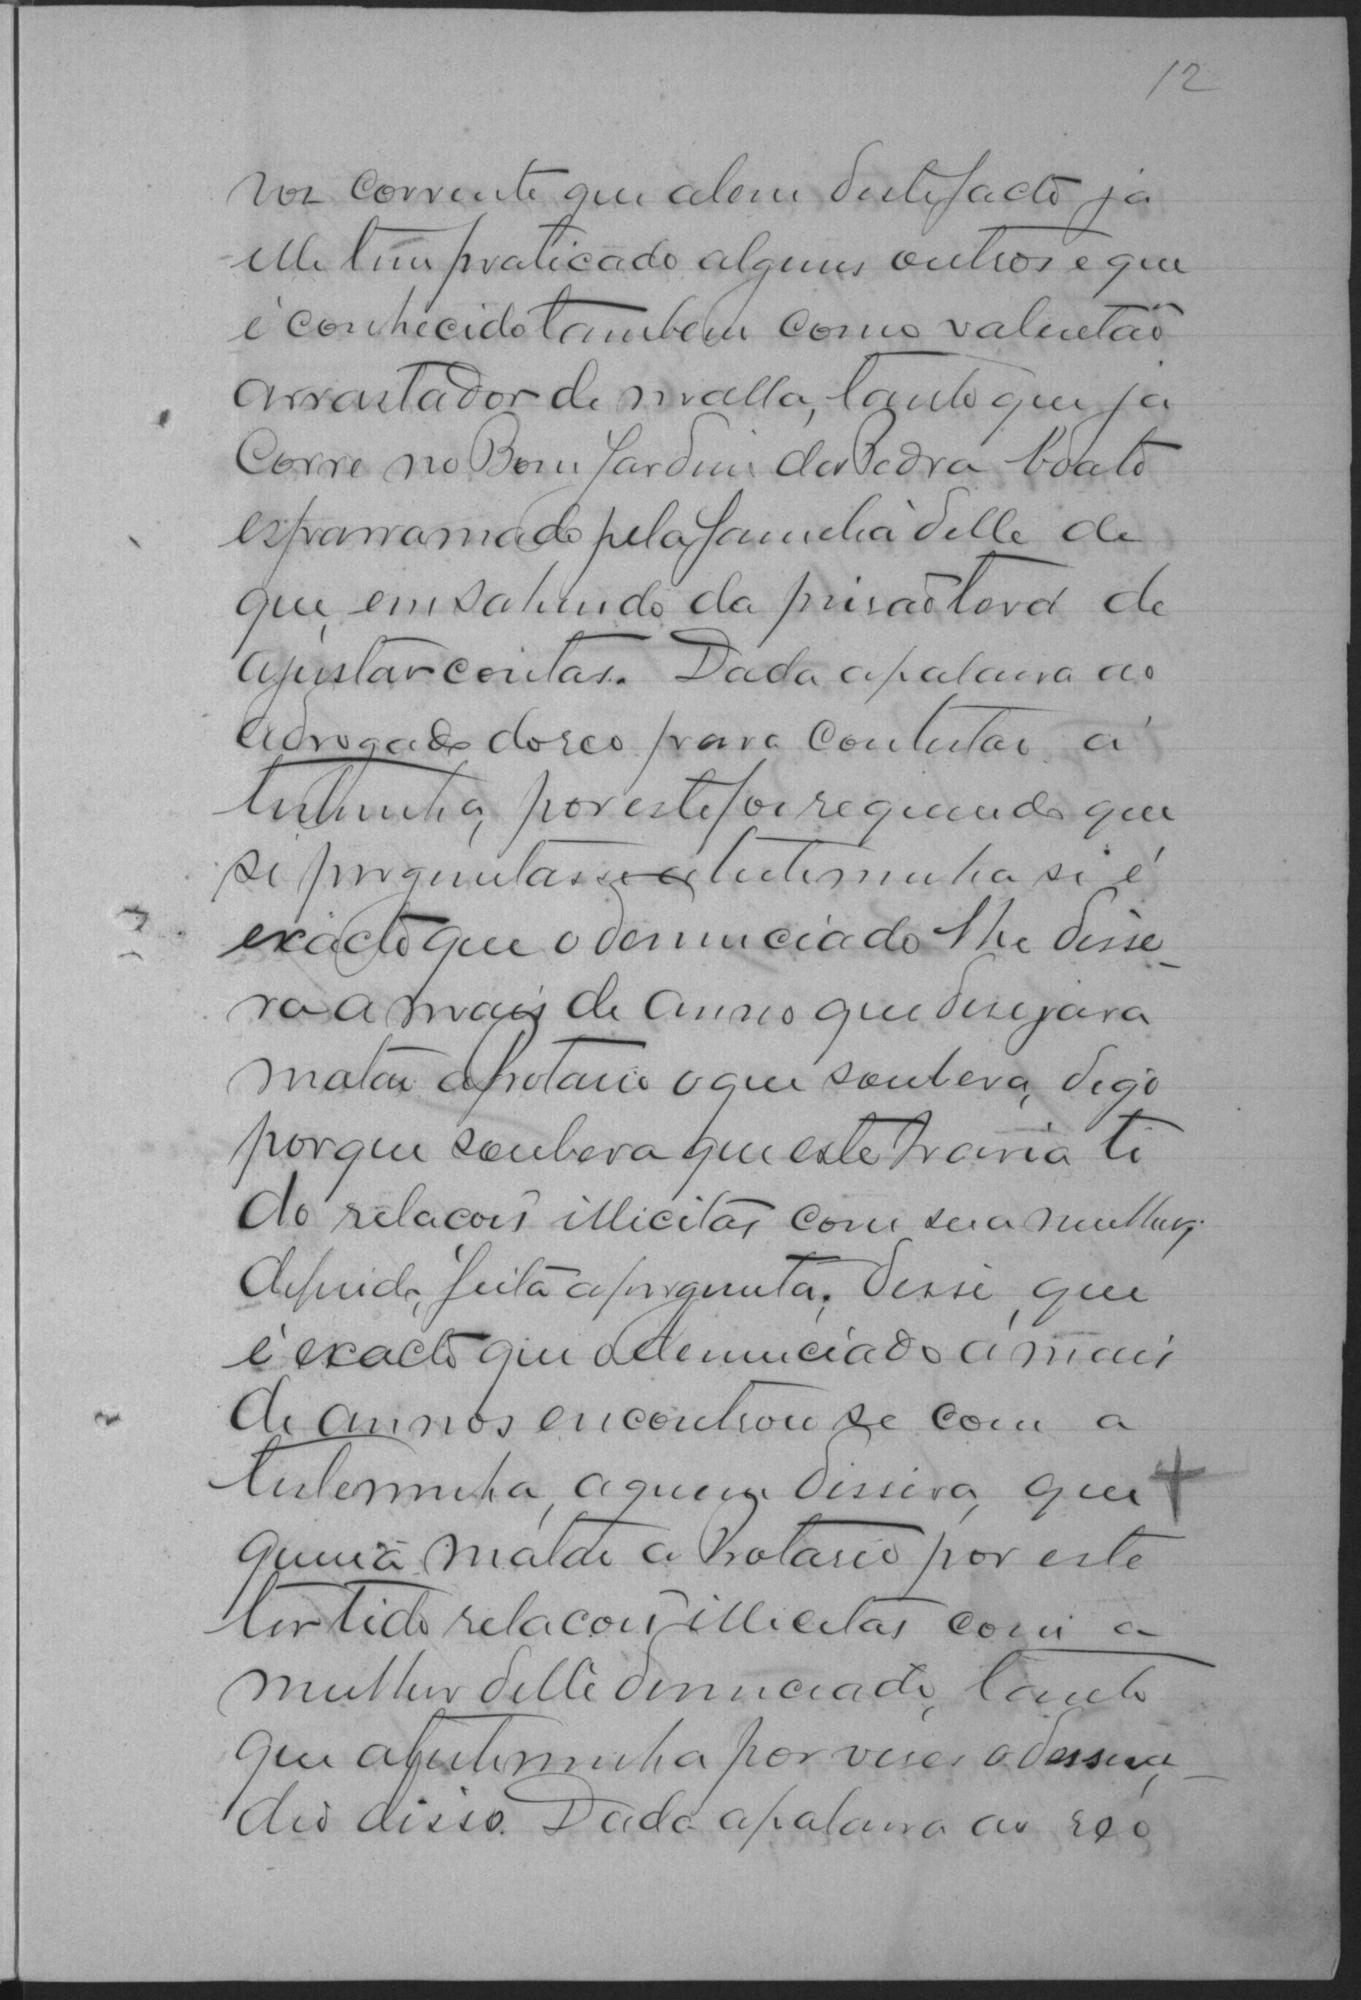 12
voz corrente que alem deste facto já
elle tem praticado alguns outros e que
é conhecido tambem como valentão
arrastador de malla, tanto que já
corre no Bom Jardim da Pedra boato
esparramado pela familia delle de
que, em sahindo da prisão terá de
ajustar contas. Dada a palavra ao
advogado do reo para contestar á
testemunha, por este foi requerido que
si perguntasse a testemunha si é
exacto que o denunciado lhe disse-
ra a mais de anno que desejava
matar a Protasio o que soubera, digo
porque soubera que este havia ti
do relacões illicitas com sua mulher.
Deferido, feita a pergunta, disse que
é exacto que o denunciado á mais
de annos encontrou se com a
testemunha, a quem dissera, que
queria matar a Protasio por este
ter tido relacões illicitas com a
mulher delle denunciado, tanto
que a testemunha por veses o dessua-
dio disso. Dada a palavra ao réo